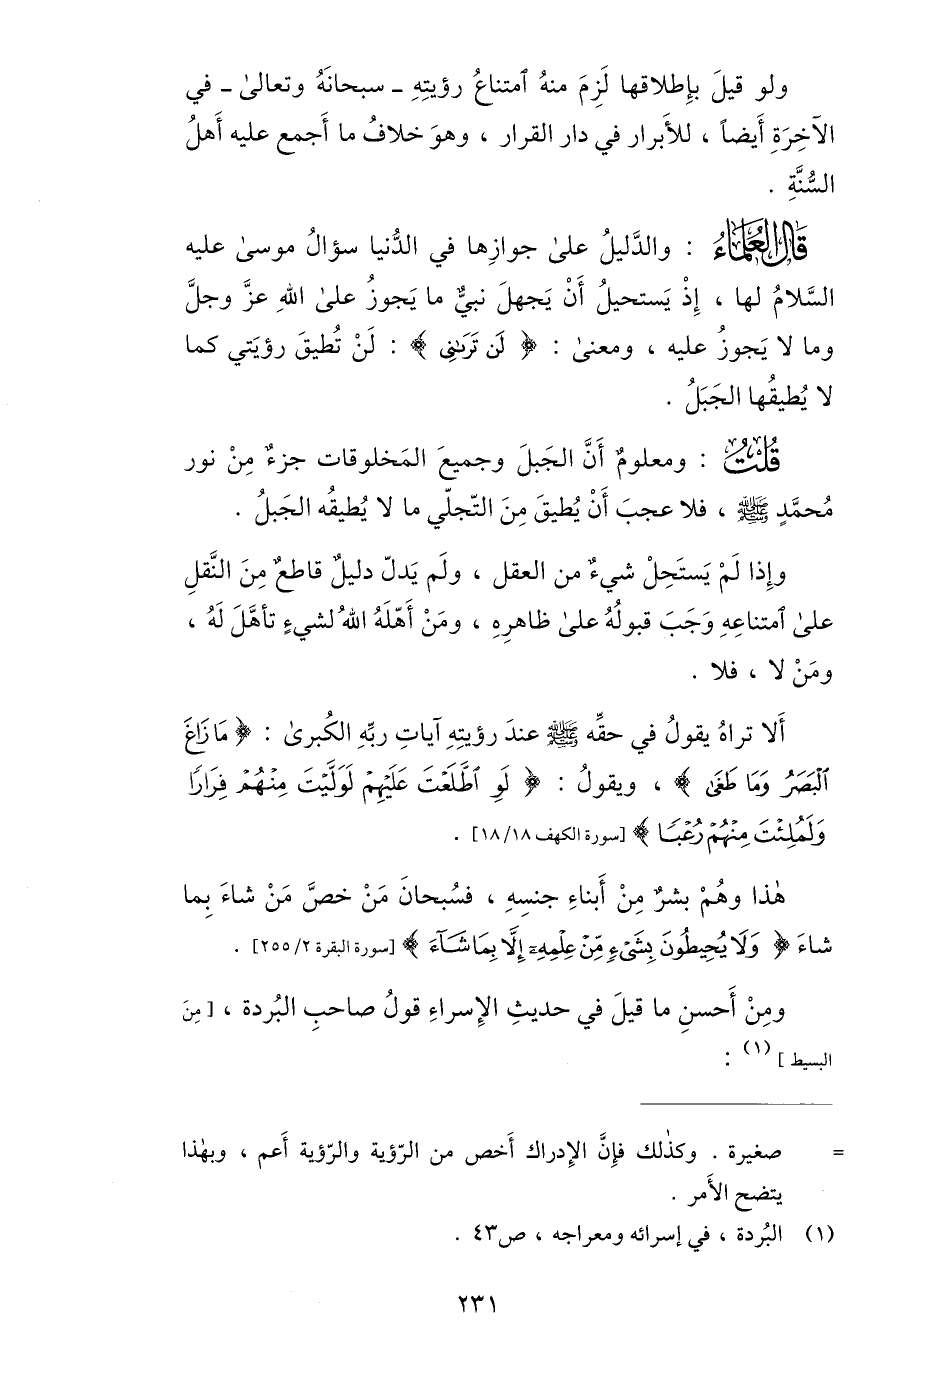 ولو قيلَ بإِطلاقها لَزِمَ منهُ ٱمتناعُ رؤيتِهِ ـ سبحانَهُ وتعالىٰ ـ في
الآخِرَةِ أَيضاً ، للأَبرار في دار القرار ، وهوَ خلافُ ما أَجمع عليه أَهلُ
السُّنَّةِ .
قَالَ العُلَمَاءُ : والدَّليلُ علىٰ جوازِها في الدُّنيا سؤالُ موسىٰ عليه
السَّلامُ لها ، إِذْ يَستحيلُ أَنْ يَجهلَ نبيٌّ ما يَجوزُ علىٰ اللهِ عزَّ وجلَّ
وما لا يَجوزُ عليه ، ومعنىٰ : ﴿ لَن تَرَىٰنِى ﴾ : لَنْ تُطيقَ رؤيَتي كما
لا يُطيقُها الجَبَلُ .
قُلْتُ : ومعلومٌ أَنَّ الجَبلَ وجميعَ المَخلوقات جزءٌ مِنْ نور
مُحمَّدٍ ﷺ ، فلا عجبَ أَنْ يُطيقَ مِنَ التّجلّي ما لا يُطيقُه الجَبلُ .
وإِذا لَمْ يَستَحِلْ شيءٌ من العقل ، ولَم يَدلّ دليلٌ قاطعٌ مِنَ النَّقلِ
علىٰ ٱمتناعِهِ وَجَبَ قبولُهُ علىٰ ظاهرِهِ ، ومَنْ أَهّلَهُ اللهُ لشيءٍ تأَهَّلَ لَهُ ،
ومَنْ لا ، فلا .
أَلا تراهُ يقولُ في حقِّه ﷺ عندَ رؤيتِهِ آياتِ ربِّهِ الكُبرىٰ : ﴿ مَا زَاغَ
ٱلْبَصَرُ وَمَا طَغَىٰ ﴾ ، ويقولُ : ﴿ لَوِ ٱطَّلَعْتَ عَلَيْهِمْ لَوَلَّيْتَ مِنْهُمْ فِرَارًا
وَلَمُلِئْتَ مِنْهُمْ رُعْبًا ﴾ [سورة الكهف ١٨/١٨] .
هٰذا وهُمْ بشرٌ مِنْ أَبناءِ جنسِهِ ، فسُبحانَ مَنْ خصَّ مَنْ شاءَ بِما
شاءَ ﴿ وَلَا يُحِيطُونَ بِشَىْءٍ مِّنْ عِلْمِهِۦٓ إِلَّا بِمَا شَآءَ ﴾ [سورة البقرة ٢/ ٢٥٥] .
ومِنْ أَحسنِ ما قيلَ في حديثِ الإِسراءِ قولُ صاحبِ البُردة ، [ مِنَ
البسيط ] (١) :
= صغيرة . وكذٰلك فإِنَّ الإِدراك أَخص من الرّؤية والرّؤية أَعم ، وبهٰذا
يتضح الأَمر .
(١) البُردة ، في إسرائه ومعراجه ، ص٤٣ .
٢٣١